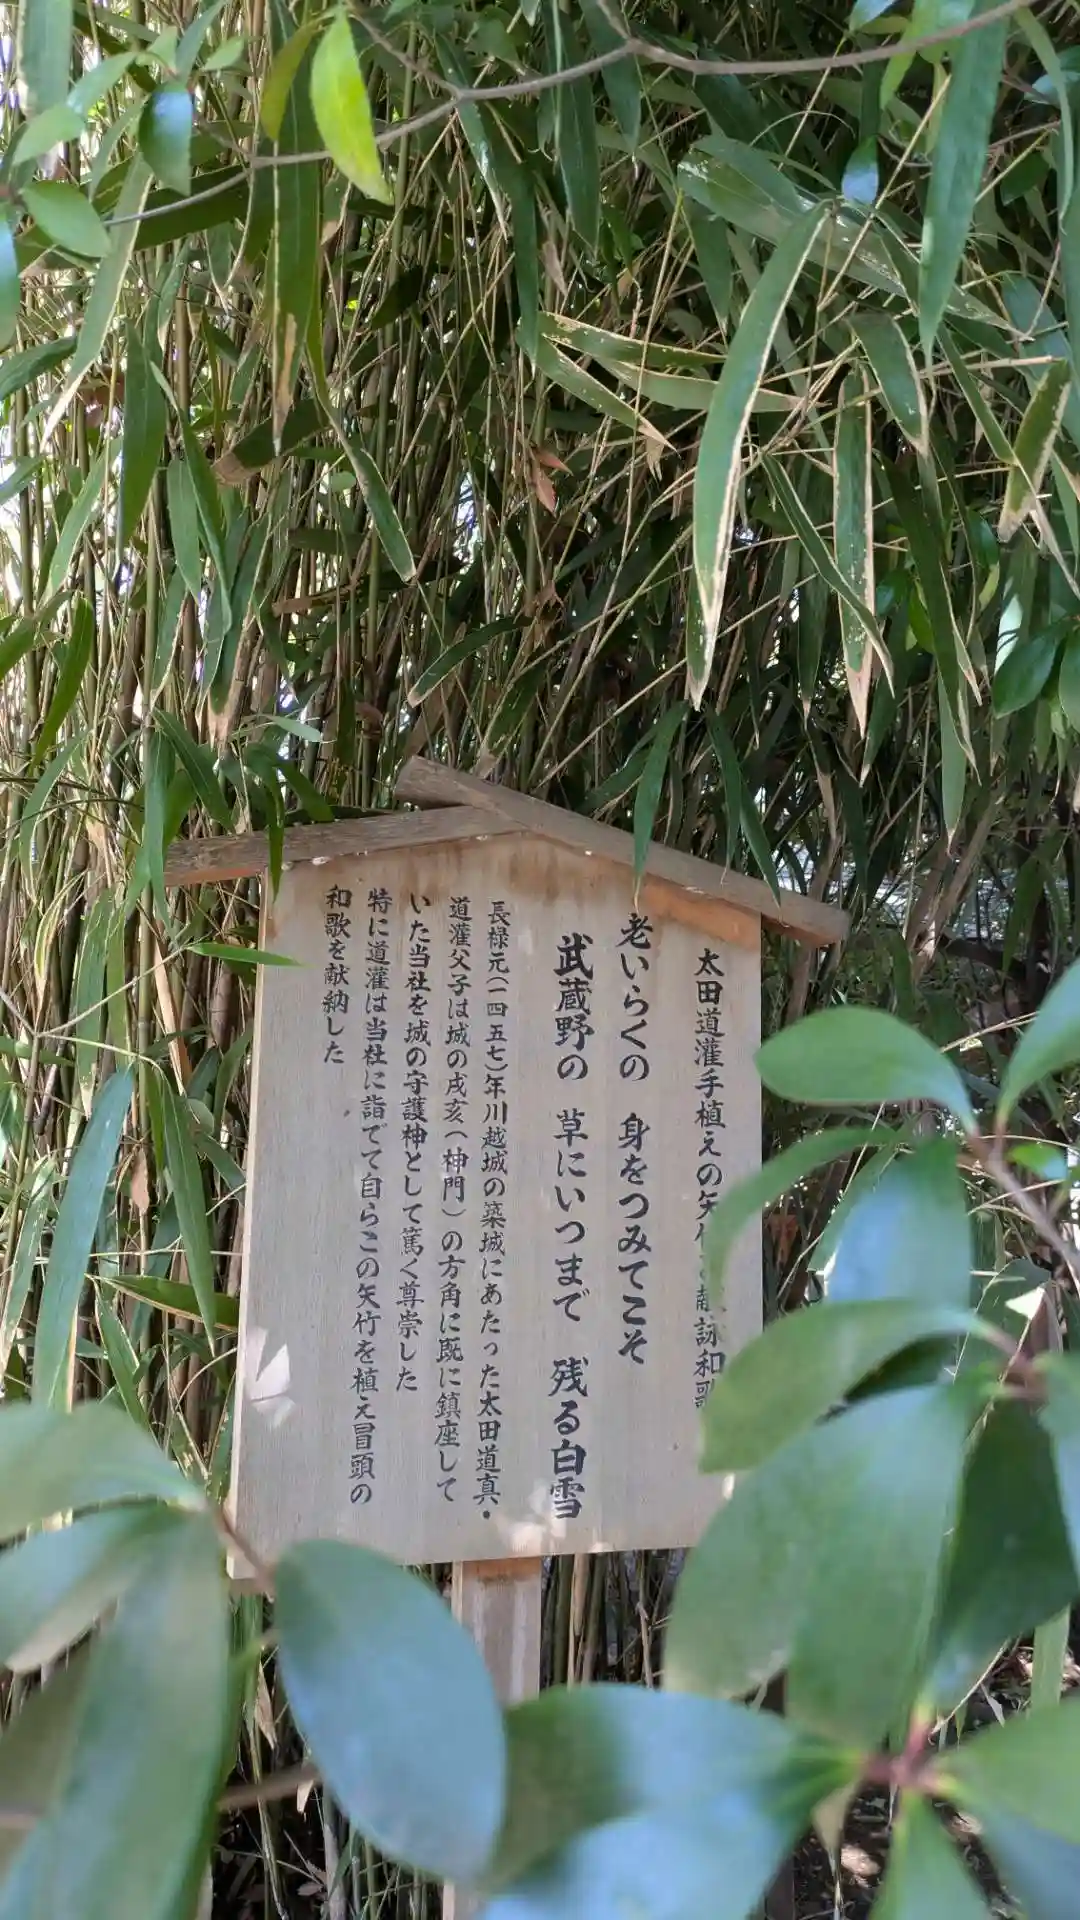 太田道灌手植えの矢竹 献詠和歌
老いらくの 身をつみてこそ
武蔵野の 草にいつまで 残る白雪
長禄元(一四五七)年川越城の築城にあたった太田道真・
道灌父子は城の戌亥(神門)の方角に既に鎮座して
いた当社を城の守護神として篤く尊崇した
特に道灌は当社に詣でて自らこの矢竹を植え冒頭の
和歌を献納した